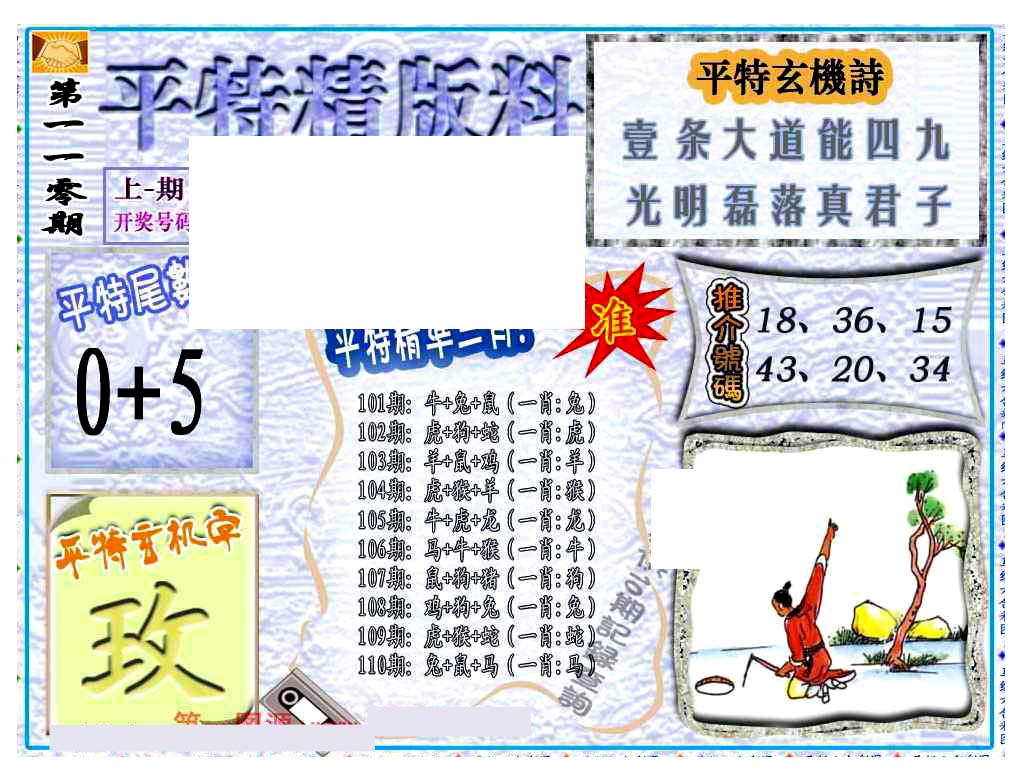 第一一零期
平特精版料
上-期
开奖号码
平特玄機詩
壹条大道能四九
光明磊落真君子
平特尾數
0+5
平特精准一肖:
准
推介號碼
18、36、15
43、20、34
101期: 牛+兔+鼠 (一肖:兔)
102期: 虎+狗+蛇 (一肖:虎)
103期: 羊+鼠+鸡 (一肖:羊)
104期: 虎+猴+羊 (一肖:猴)
105期: 牛+虎+龙 (一肖:龙)
106期: 马+牛+猴 (一肖:牛)
107期: 鼠+狗+猪 (一肖:狗)
108期: 鸡+狗+兔 (一肖:兔)
109期: 虎+猴+蛇 (一肖:蛇)
110期: 兔+鼠+马 (一肖:马)
平特玄机字
玫